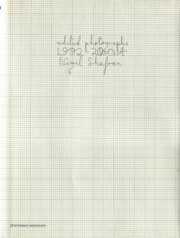 edited photographs
1992-2004
Nigel Shafran
photoworks monograph